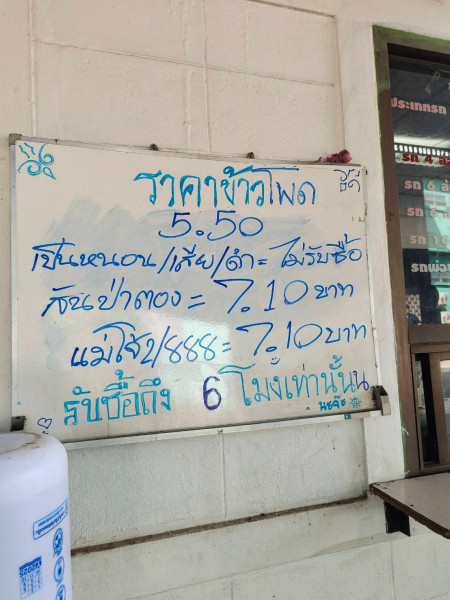 ราคาข้าวโพด
5.50
เป็นหนอน/เสีย/ดำ = ไม่รับซื้อ
สันป่าตอง = 7.10 บาท
แม่โจ้2/888 = 7.10 บาท
รับซื้อถึง 6 โมงเท่านั้นน
นะจ๊ะ
ประเภทรถ
รถ 4 ล้
รถ 6 ล้
รถพ่วง